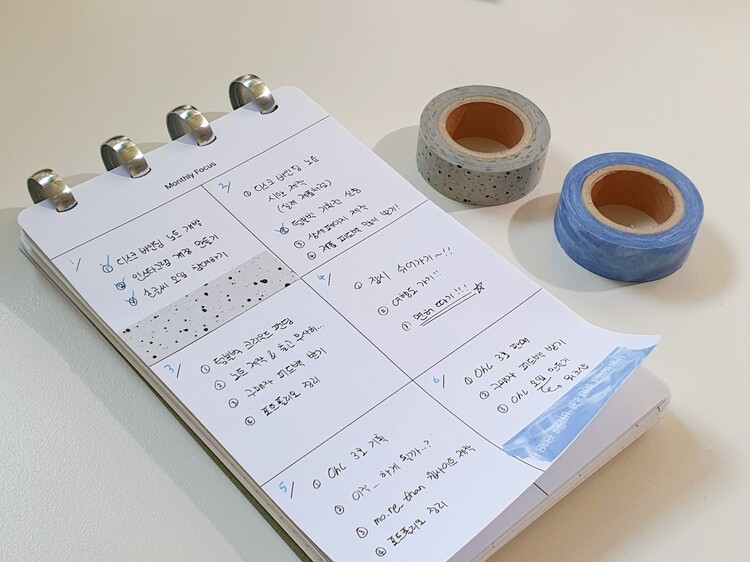 Monthly Focus
1/
① 디스크 바인딩 노트 개발
② 인스타그램 계정 만들기
③ 손글씨 모임 참여하기
2/
① 디스크 바인딩 노트
시안 제작
(실제 제품하고)
② 텀블벅 기획전 신청
③ 상세페이지 제작
④ 제품 피드백 많이 받기!
3/
① 텀블벅 크라우드 펀딩
② 노트 제작 & 출고 무사히...
③ 구매자 피드백 받기
④ 포트폴리오 정리
4/
① 잠시 쉬어가기~!!
② 여행도 가기!!
③ 면허 따기!!! ☆
5/
① OhL 3호 기획
② 이직... 하게 될까...?
③ mo.re-than 웹사이트 제작
④ 포트폴리오 정리
6/
① OhL 3호 판매
② 구매자 피드백 받기
③ OhL 모임 만들기